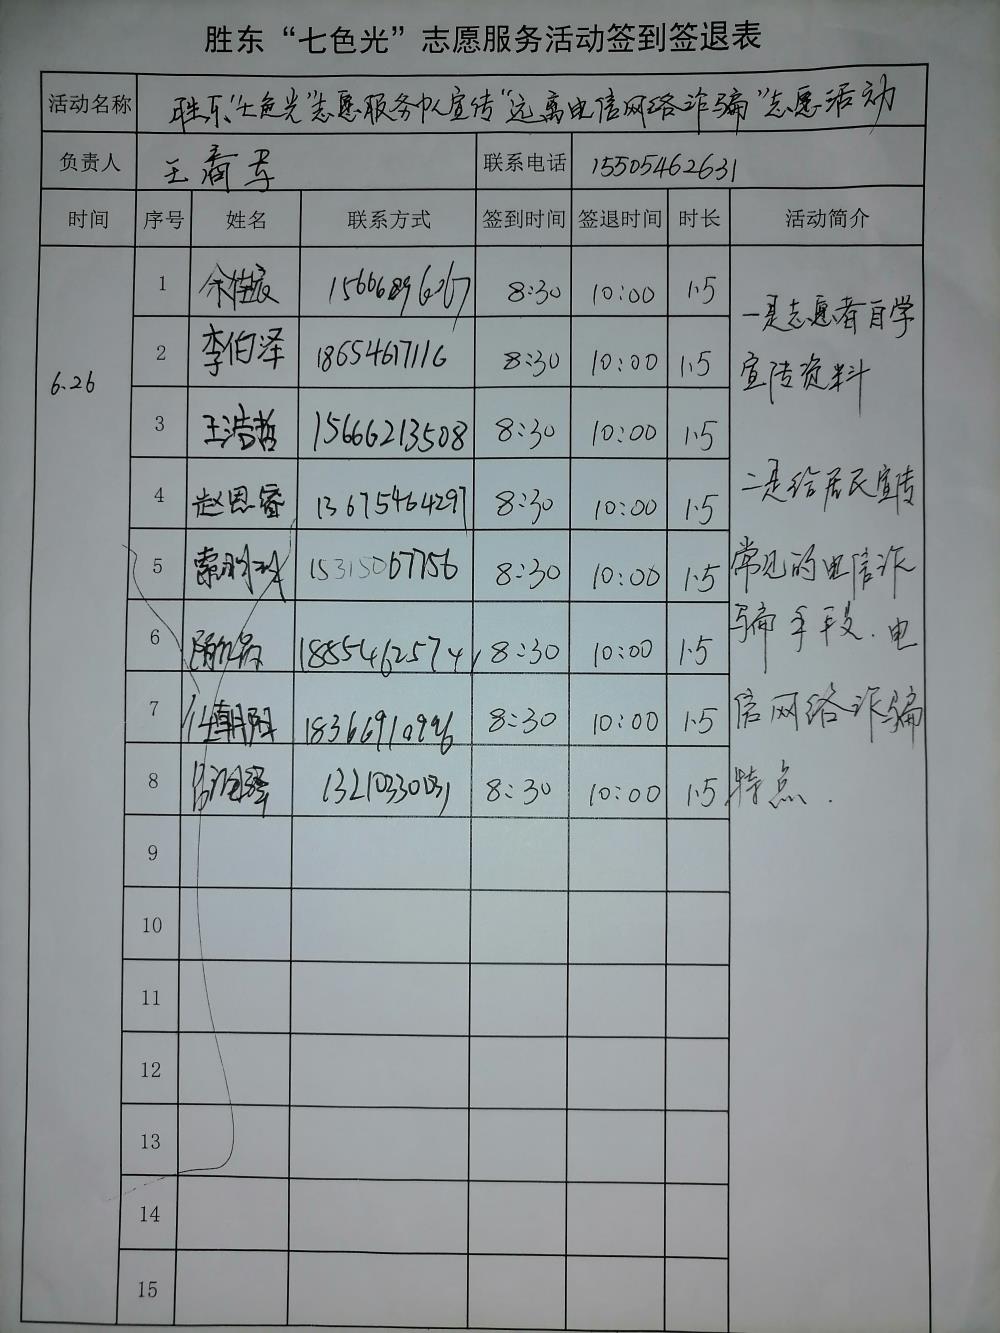 胜东“七色光”志愿服务活动签到签退表
活动名称 胜东“七色光”志愿服务中心宣传“远离电信网络诈骗”志愿活动
负责人 王 联系电话 15505462631
时间 序号 姓名 联系方式 签到时间 签退时间 时长 活动简介
6.26
1 8:30 10:00 1.5
2 李伯泽 18654617116 8:30 10:00 1.5
3 王浩哲 15666213508 8:30 10:00 1.5
4 赵思睿 13675464297 8:30 10:00 1.5
5 15315067756 8:30 10:00 1.5
6 8:30 10:00 1.5
7 朝阳 8:30 10:00 1.5
8 8:30 10:00 1.5
9
10
11
12
13
14
15
一是志愿者自学
宣传资料
二是给居民宣传
常见的电信诈
骗手段.电
信网络诈骗
特点.